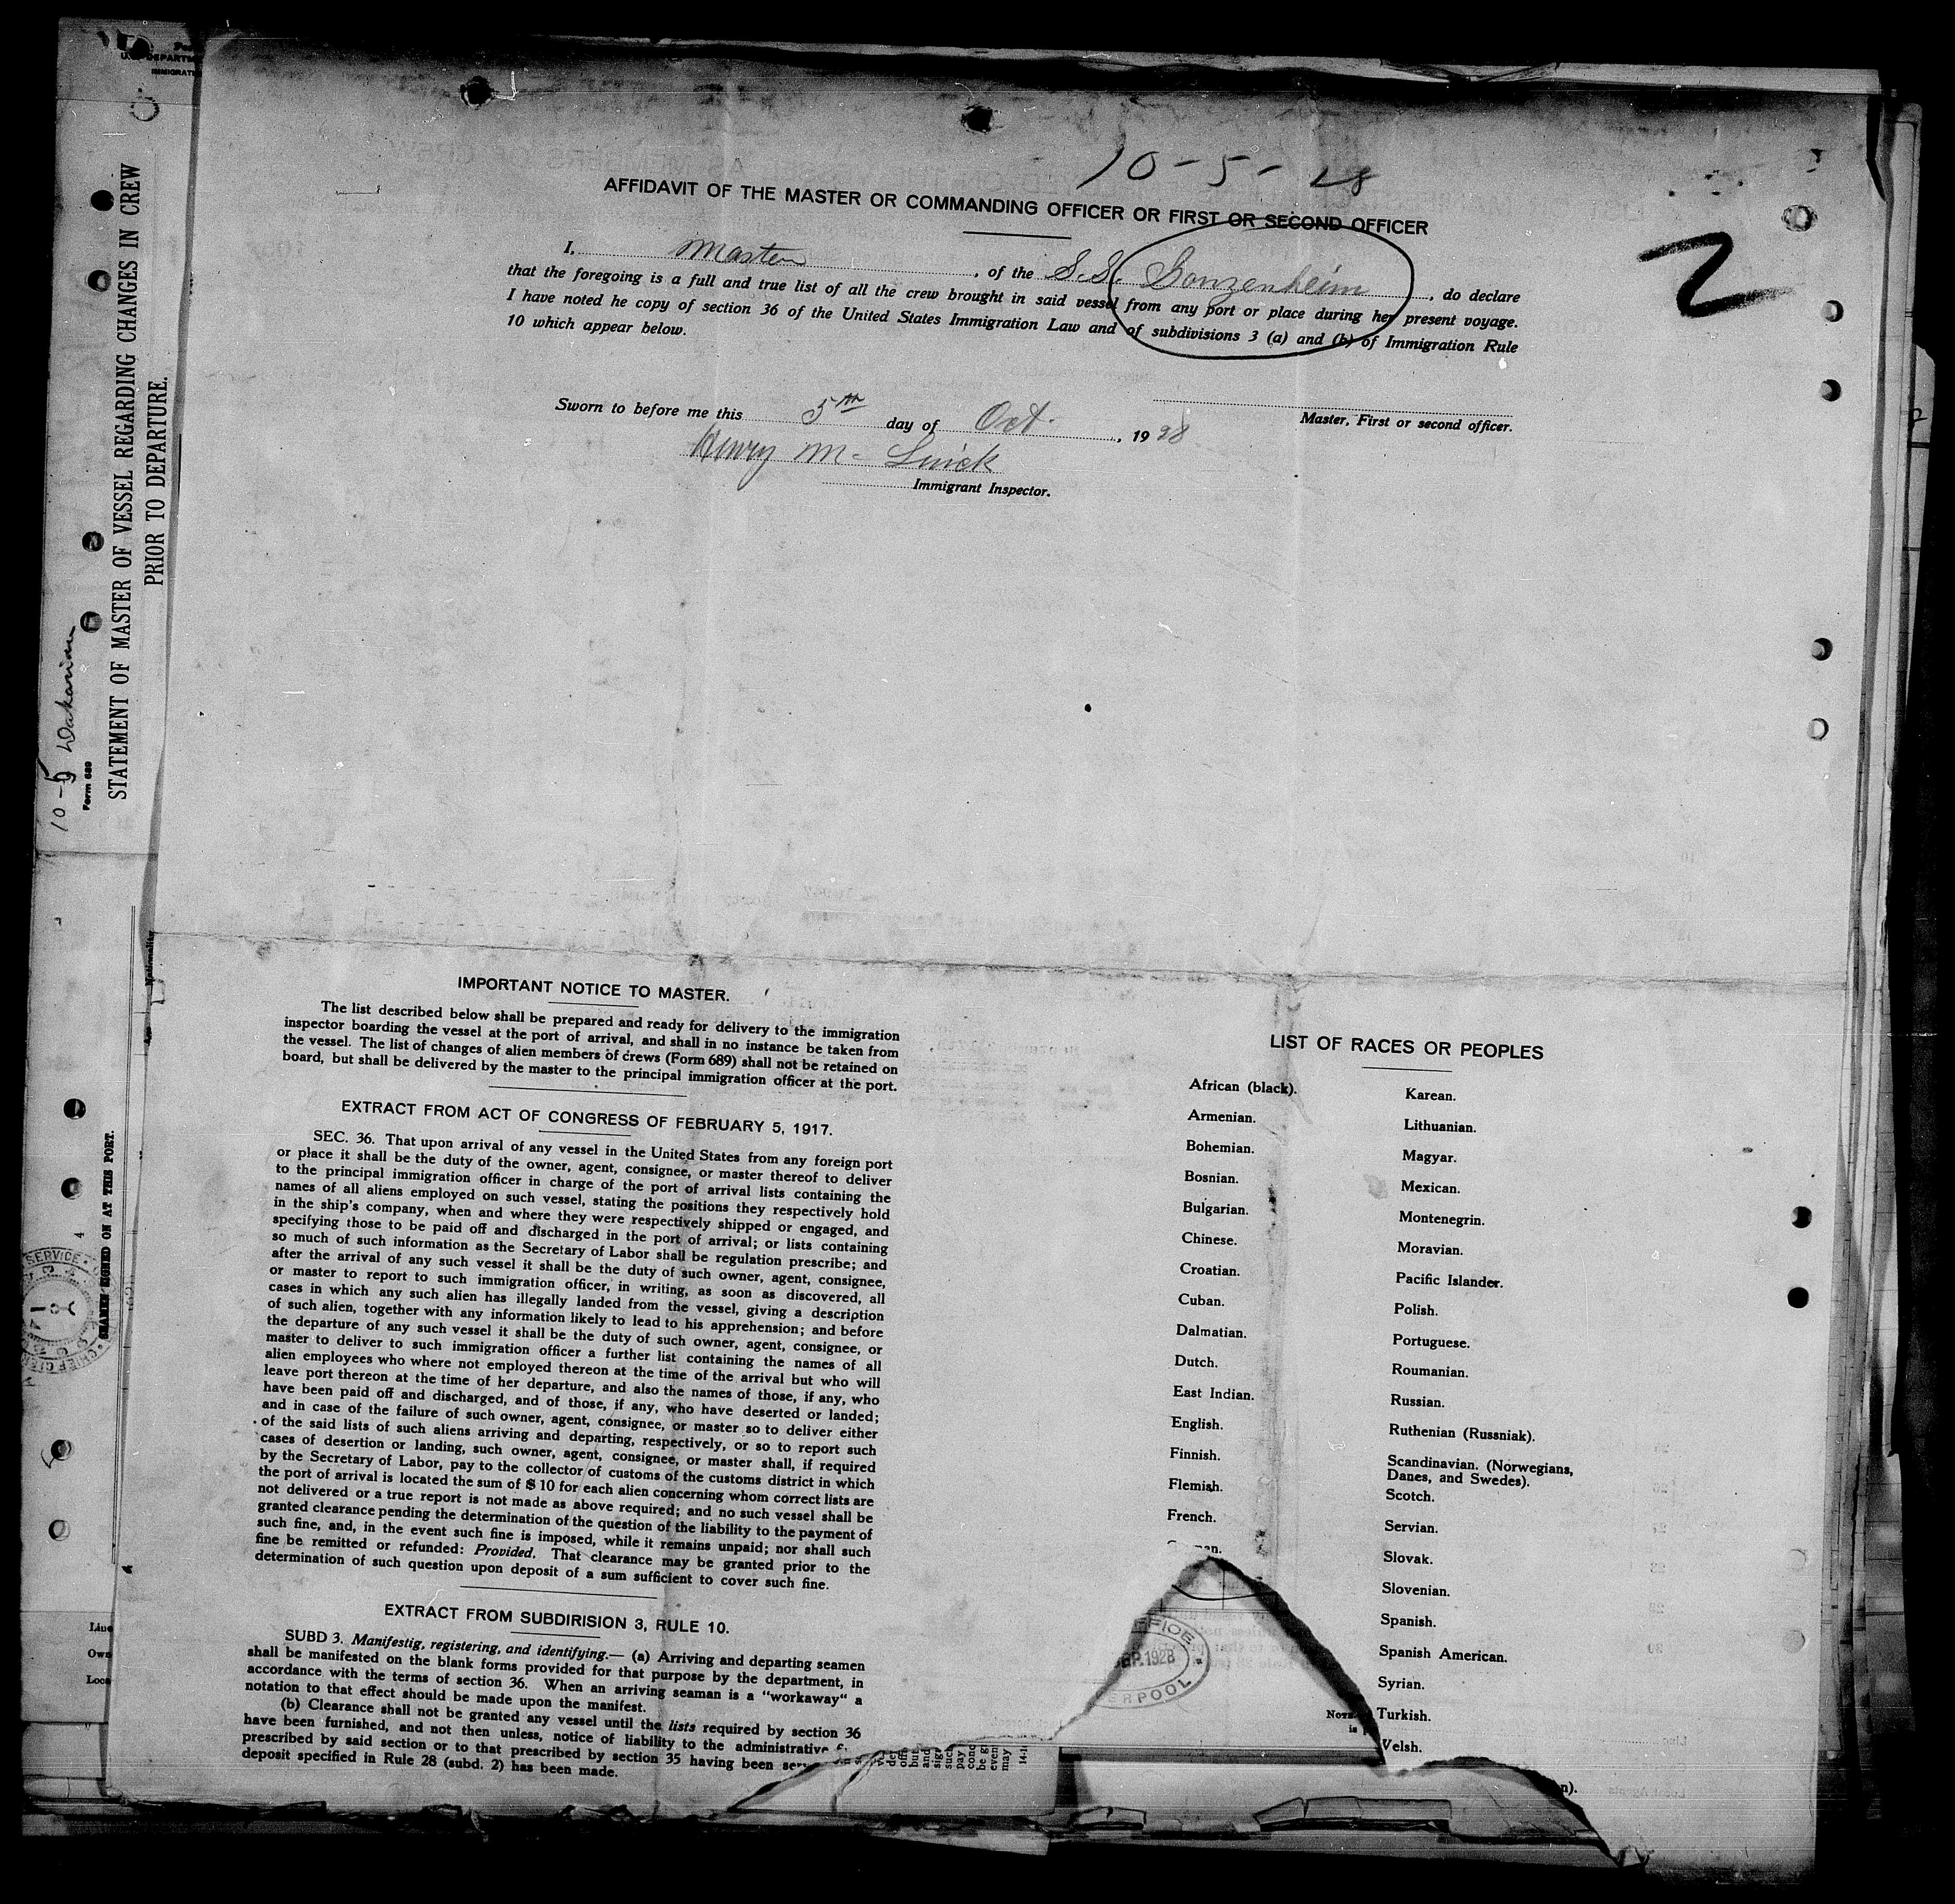 10-5-28
AFFIDAVIT OF THE MASTER OR COMMANDING OFFICER OR FIRST OR SECOND OFFICER
2
I, Master, of the S.S. Gonzenheim, do declare
that the foregoing is a full and true list of all the crew brought in said vessel from any port or place during her present voyage.
I have noted he copy of section 36 of the United States Immigration Law and of subdivisions 3 (a) and (b) of Immigration Rule
10 which appear below.
Master, First or second officer.
Sworn to before me this 5th day of Oct., 1928
Henry M.
Immigrant Inspector.
STATEMENT OF MASTER OF VESSEL REGARDING CHANGES IN CREW
PRIOR TO DEPARTURE.
Form 689
10-5
Nationality
SEAMEN SIGNED ON AT THIS PORT.
4
SERVICE
IMPORTANT NOTICE TO MASTER.
The list described below shall be prepared and ready for delivery to the immigration
inspector boarding the vessel at the port of arrival, and shall in no instance be taken from
the vessel. The list of changes of alien members of crews (Form 689) shall not be retained on
board, but shall be delivered by the master to the principal immigration officer at the port.
EXTRACT FROM ACT OF CONGRESS OF FEBRUARY 5, 1917.
SEC. 36. That upon arrival of any vessel in the United States from any foreign port
or place it shall be the duty of the owner, agent, consignee, or master thereof to deliver
to the principal immigration officer in charge of the port of arrival lists containing the
names of all aliens employed on such vessel, stating the positions they respectively hold
in the ship's company, when and where they were respectively shipped or engaged, and
specifying those to be paid off and discharged in the port of arrival; or lists containing
so much of such information as the Secretary of Labor shall be regulation prescribe; and
after the arrival of any such vessel it shall be the duty of such owner, agent, consignee,
or master to report to such immigration officer, in writing, as soon as discovered, all
cases in which any such alien has illegally landed from the vessel, giving a description
of such alien, together with any information likely to lead to his apprehension; and before
the departure of any such vessel it shall be the duty of such owner, agent, consignee, or
master to deliver to such immigration officer a further list containing the names of all
alien employees who where not employed thereon at the time of the arrival but who will
leave port thereon at the time of her departure, and also the names of those, if any, who
have been paid off and discharged, and of those, if any, who have deserted or landed;
and in case of the failure of such owner, agent, consignee, or master so to deliver either
of the said lists of such aliens arriving and departing, respectively, or so to report such
cases of desertion or landing, such owner, agent, consignee, or master shall, if required
by the Secretary of Labor, pay to the collector of customs of the customs district in which
the port of arrival is located the sum of $ 10 for each alien concerning whom correct lists are
not delivered or a true report is not made as above required; and no such vessel shall be
granted clearance pending the determination of the question of the liability to the payment of
such fine, and, in the event such fine is imposed, while it remains unpaid; nor shall such
fine be remitted or refunded: Provided, That clearance may be granted prior to the
determination of such question upon deposit of a sum sufficient to cover such fine.
EXTRACT FROM SUBDIRISION 3, RULE 10.
SUBD 3. Manifestig, registering, and identifying.— (a) Arriving and departing seamen
shall be manifested on the blank forms provided for that purpose by the department, in
accordance with the terms of section 36. When an arriving seaman is a "workaway" a
notation to that effect should be made upon the manifest.
(b) Clearance shall not be granted any vessel until the lists required by section 36
have been furnished, and not then unless, notice of liability to the administrative
prescribed by said section or to that prescribed by section 35 having been
deposit specified in Rule 28 (subd. 2) has been made.
LIST OF RACES OR PEOPLES
African (black).
Armenian.
Bohemian.
Bosnian.
Bulgarian.
Chinese.
Croatian.
Cuban.
Dalmatian.
Dutch.
East Indian.
English.
Finnish.
Flemish.
French.
Karean.
Lithuanian.
Magyar.
Mexican.
Montenegrin.
Moravian.
Pacific Islander.
Polish.
Portuguese.
Roumanian.
Russian.
Ruthenian (Russniak).
Scandinavian. (Norwegians,
Danes, and Swedes).
Scotch.
Servian.
Slovak.
Slovenian.
Spanish.
Spanish American.
Syrian.
Turkish.
Velsh.
1928